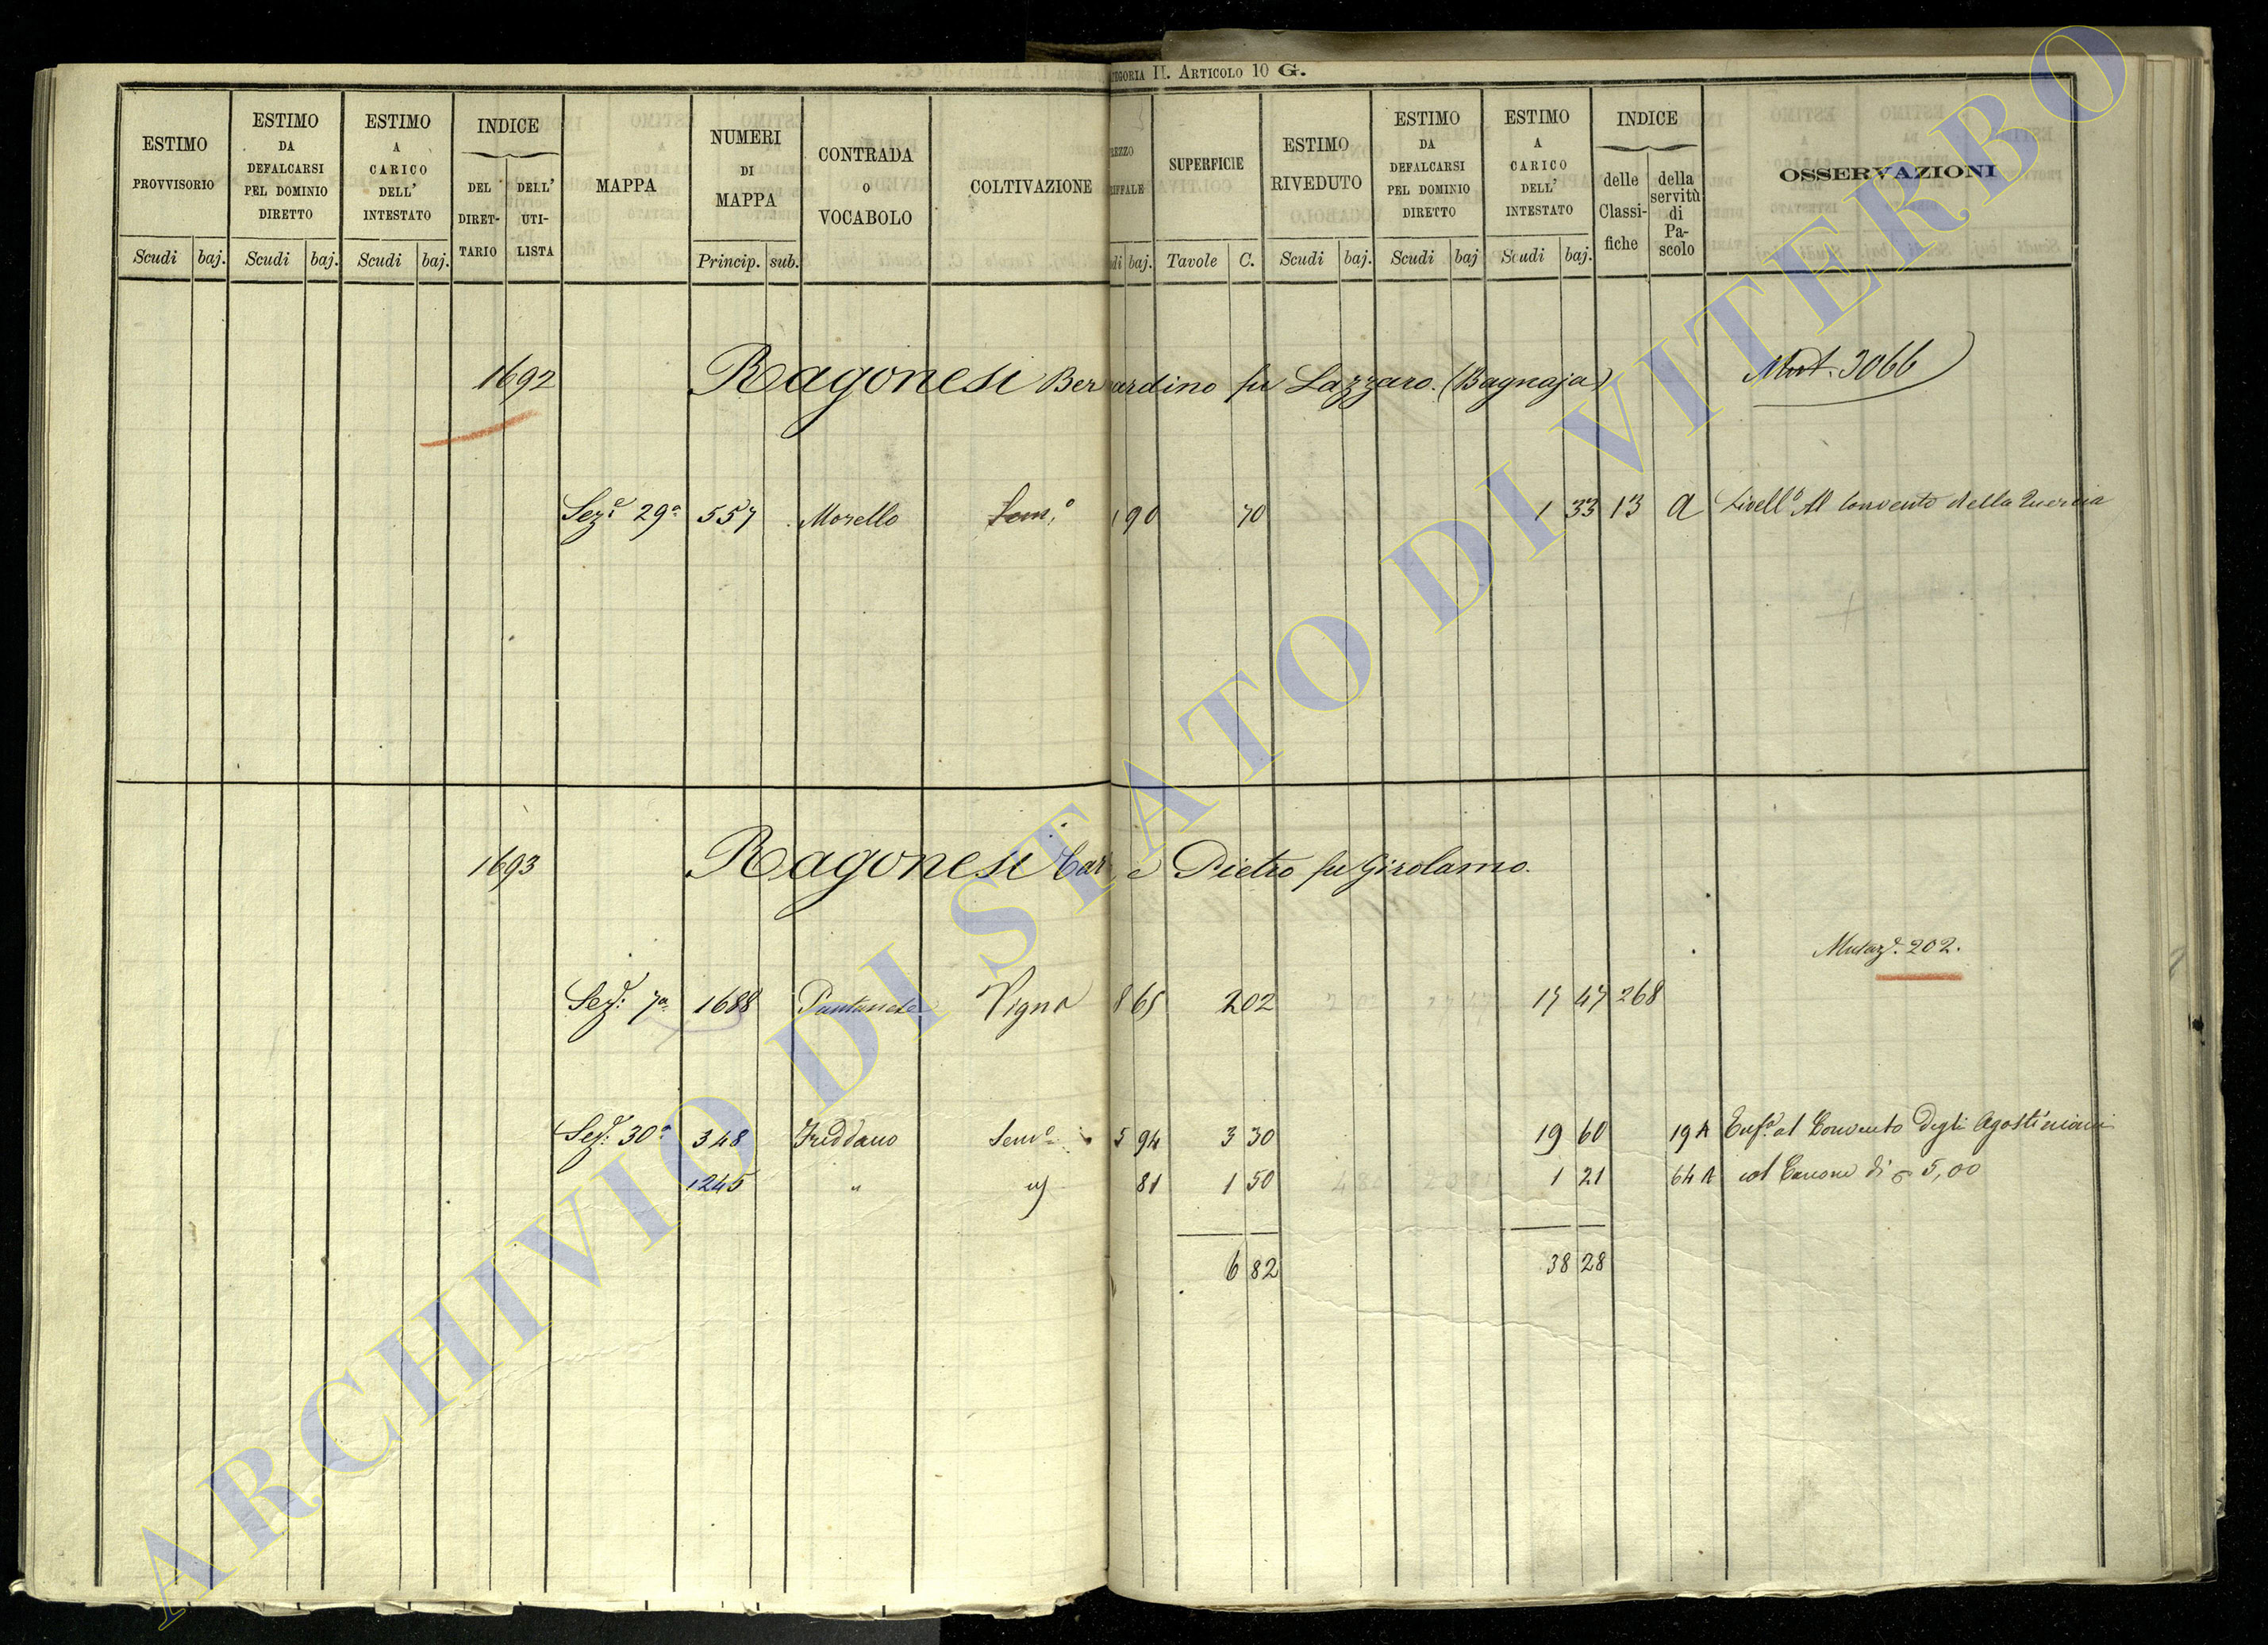 TEGORIA II. ARTICOLO 10 G.
ESTIMO PROVVISORIO
Scudi baj.
ESTIMO DA DEFALCARSI PEL DOMINIO DIRETTO
Scudi baj.
ESTIMO A CARICO DELL' INTESTATO
Scudi baj.
INDICE
DEL DIRET-TARIO
DELL' UTI-LISTA
MAPPA
NUMERI DI MAPPA
Princip. sub.
CONTRADA O VOCABOLO
COLTIVAZIONE
REZZO
RIFFALE
di baj.
SUPERFICIE
Tavole C.
ESTIMO RIVEDUTO
Scudi baj.
ESTIMO DA DEFALCARSI PEL DOMINIO DIRETTO
Scudi baj
ESTIMO A CARICO DELL' INTESTATO
Scudi baj.
INDICE
delle Classi-fiche
della servitù di Pa-scolo
OSSERVAZIONI
1692 Ragonesi Bernardino fu Lazzaro. (Bagnaja) Mut. 3066
Sez.e 29a 557 Morello Sem.o 1 90 70 1 33 13 A Livell.o Al Convento della Quercia
1693 Ragonesi Car e Pietro fu Girolamo.
Mutaz.e 202.
Sez.e 7a 1688 Vigna 8 65 2 02 17 47 268
Sez.e 30a 348 Freddano Sem.o 5 94 3 30 19 60 19 A Enf.a al Convento degli Agostiniani
1245 " " 81 1 50 1 21 64 A col Canone di 5,00
6 82 38 28
ARCHIVIO DI STATO DI VITERBO